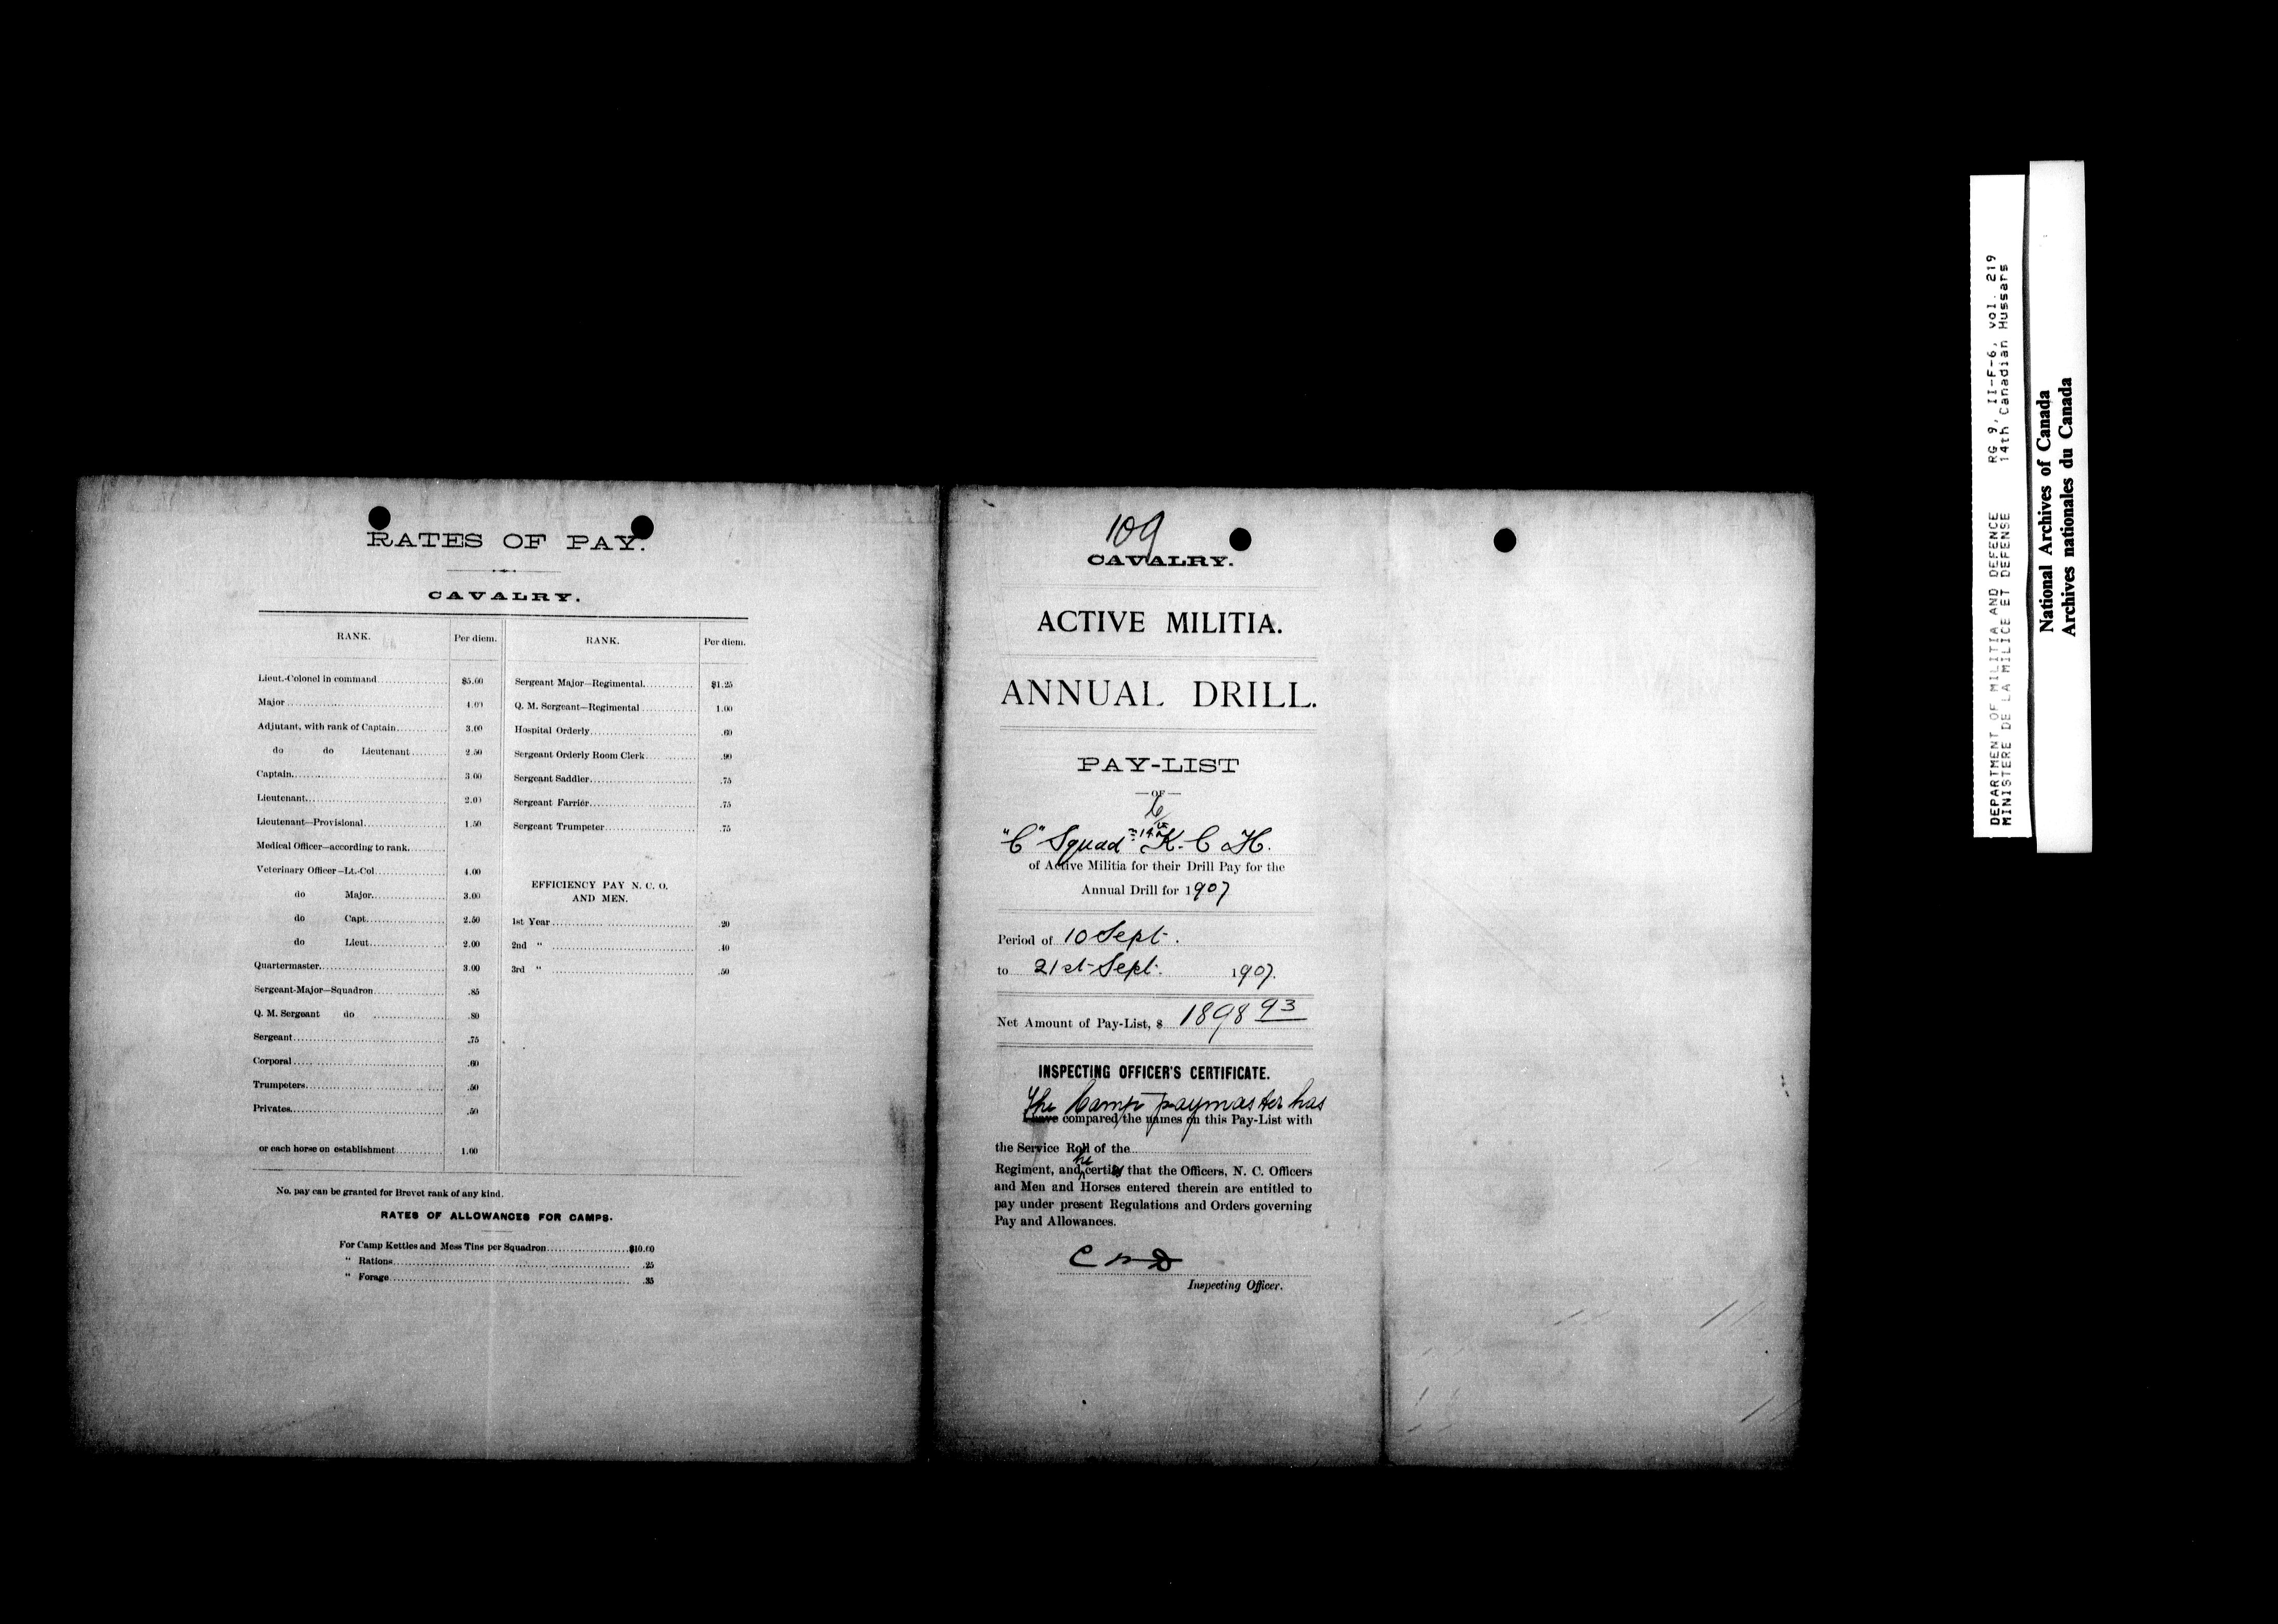 RATES OF PAY.
CAVALRY.
RANK. Per diem.
Lieut.-Colonel in command $5.00
Major 4.00
Adjutant, with rank of Captain 3.00
do do Lieutenant 2.50
Captain 3.00
Lieutenant 2.00
Lieutenant—Provisional 1.50
Medical Officer—according to rank.
Veterinary Officer—Lt.-Col. 4.00
do Major 3.00
do Capt. 2.50
do Lieut. 2.00
Quartermaster 3.00
Sergeant-Major—Squadron .85
Q. M. Sergeant do .80
Sergeant .75
Corporal .60
Trumpeters .50
Privates .50
or each horse on establishment 1.00
RANK. Per diem.
Sergeant Major—Regimental $1.25
Q. M. Sergeant—Regimental 1.00
Hospital Orderly .60
Sergeant Orderly Room Clerk .90
Sergeant Saddler .75
Sergeant Farrier .75
Sergeant Trumpeter .75
EFFICIENCY PAY N. C. O.
AND MEN.
1st Year .20
2nd " .40
3rd " .50
No. pay can be granted for Brevet rank of any kind.
RATES OF ALLOWANCES FOR CAMPS.
For Camp Kettles and Mess Tins per Squadron $10.00
" Rations .25
" Forage .35
109
CAVALRY.
ACTIVE MILITIA.
ANNUAL DRILL.
PAY-LIST
—OF—
"C" Squad 14th K. C H.
of Active Militia for their Drill Pay for the
Annual Drill for 1907
Period of 10 Sept.
to 21st Sept. 1907.
Net Amount of Pay-List, $ 1898 93
INSPECTING OFFICER'S CERTIFICATE.
The Camp paymaster has
I have compared the names on this Pay-List with
the Service Roll of the
he
Regiment, and certify that the Officers, N. C. Officers
and Men and Horses entered therein are entitled to
pay under present Regulations and Orders governing
Pay and Allowances.
Inspecting Officer.
DEPARTMENT OF MILITIA AND DEFENCE RG 9, II-F-6, vol. 219
MINISTERE DE LA MILICE ET DEFENSE 14th Canadian Hussars
National Archives of Canada
Archives nationales du Canada